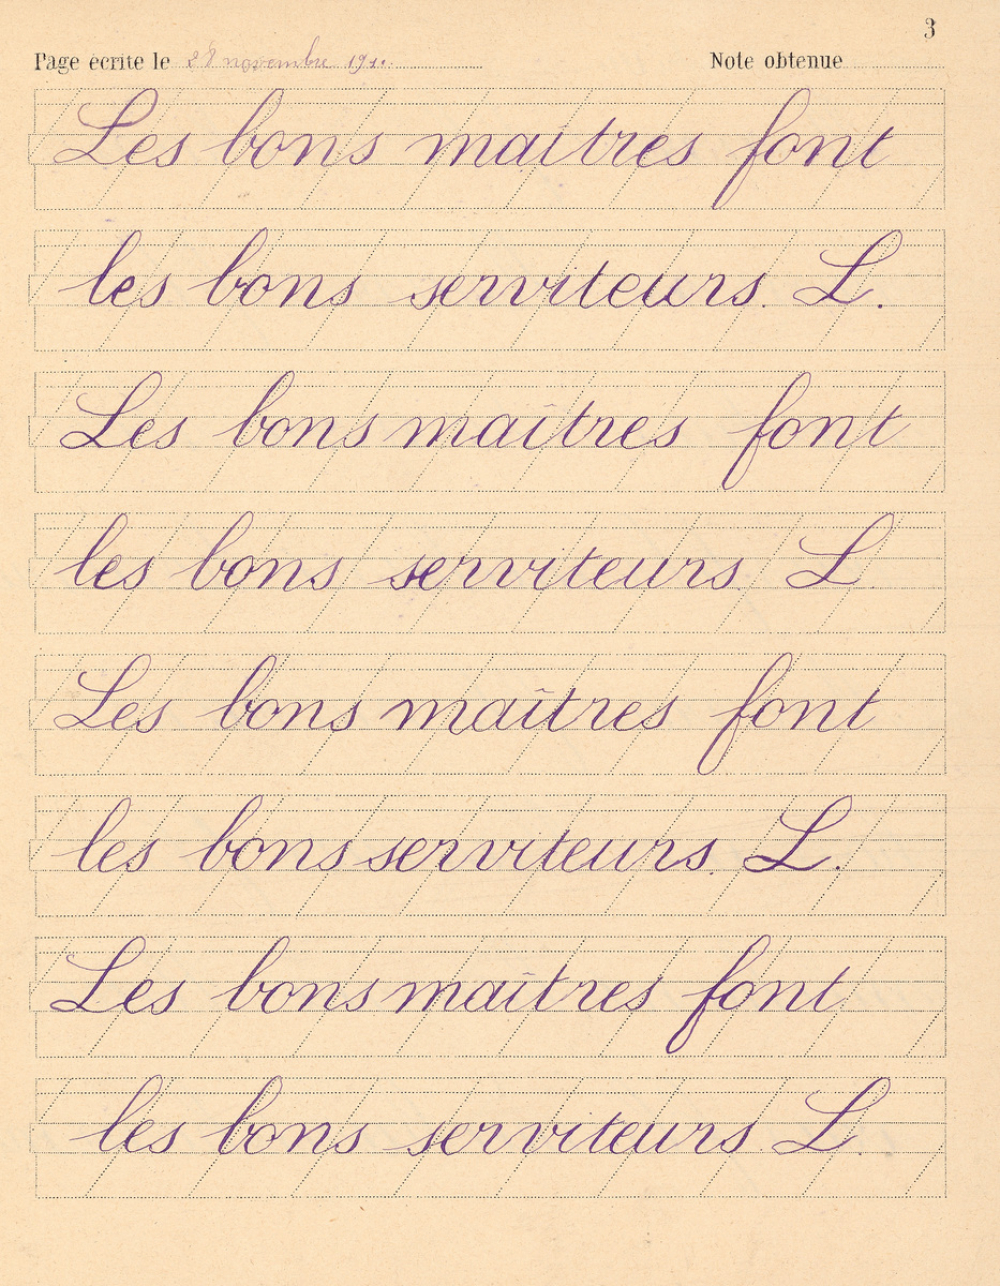 3
Page écrite le 28 novembre Note obtenue
Les bons maitres font
les bons serviteurs. L.
Les bons maîtres font
les bons serviteurs. L.
Les bons maîtres font
les bons serviteurs. L.
Les bons maîtres font
les bons serviteurs. L.